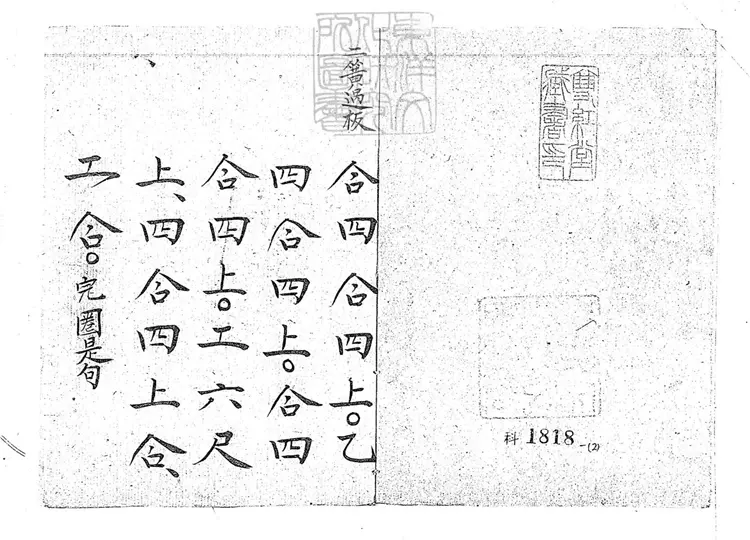 雙紅堂
藏書印
科 1818 -(2)
二簧過板
合四合四上○乙
四合四上○合四
合四上○工六尺
上、四合四上合、
工合○完圈是句